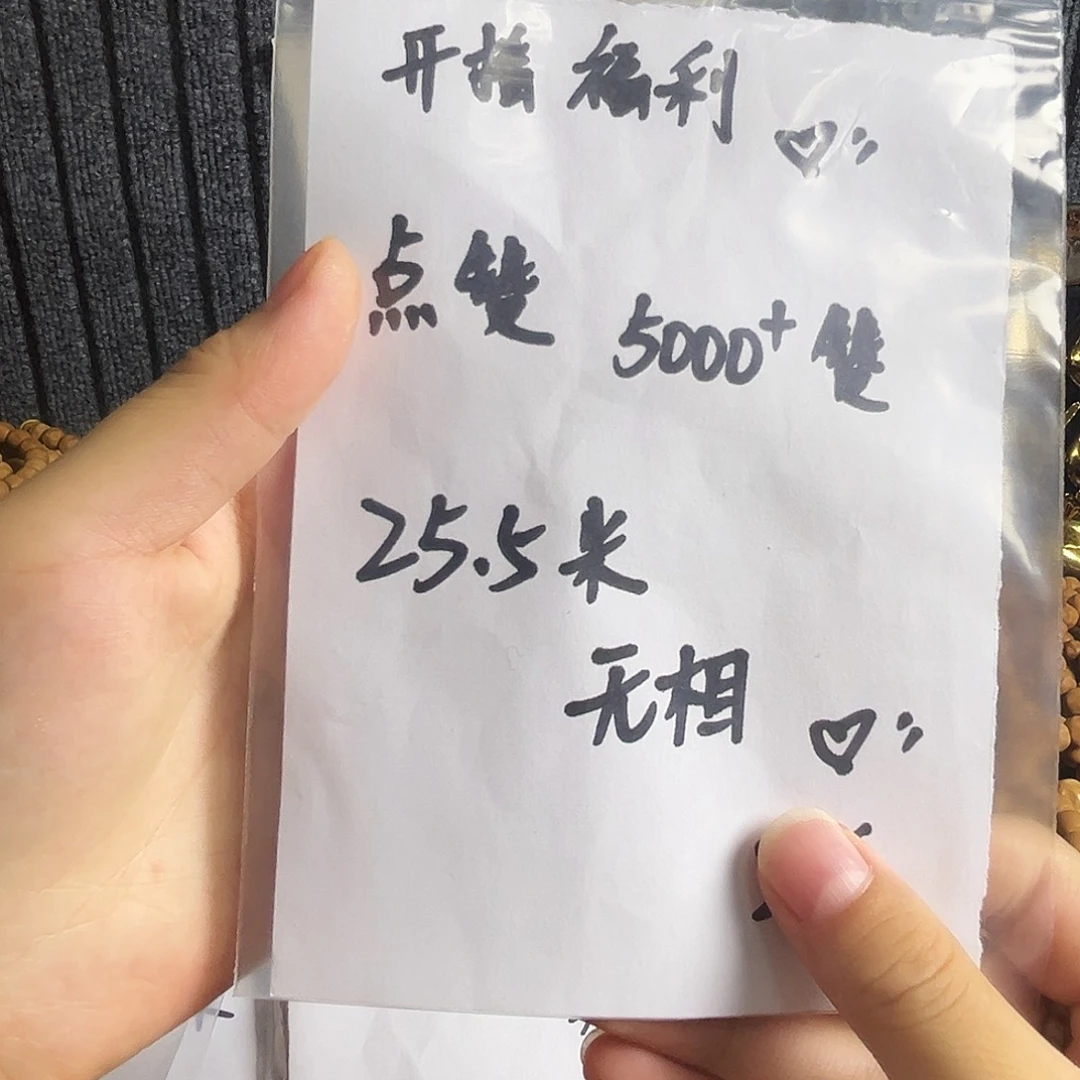 开播福利
点雙 5000+雙
25.5米
无相